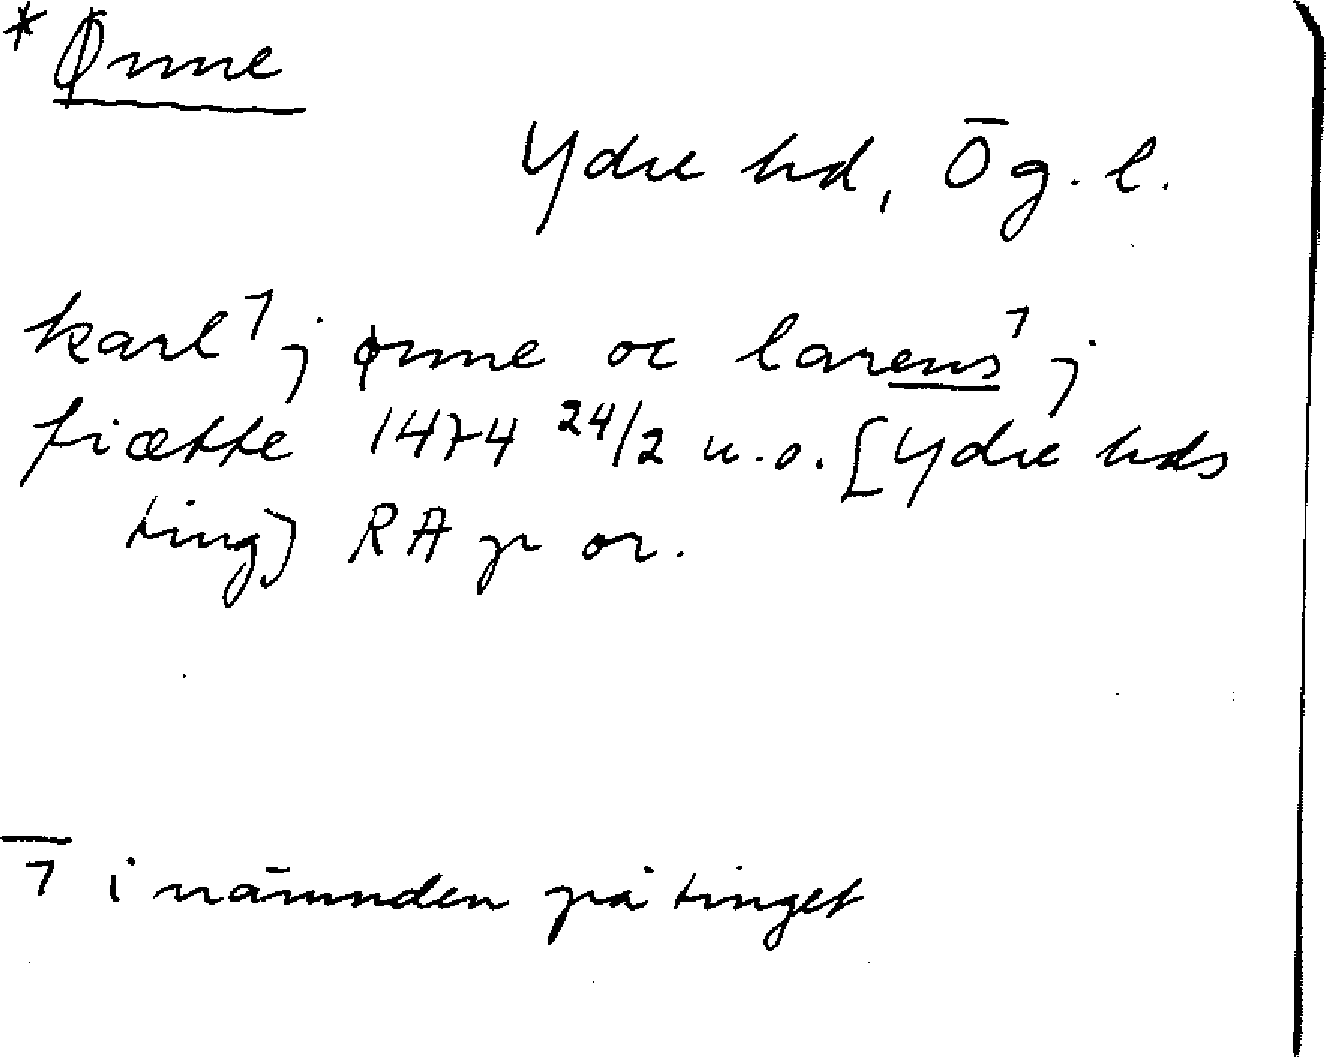 * Ønne
Ydre hd, Ög. l.
karl ⁊ j ønne oc larens ⁊ j
fiætte 1474 24/2 u.o. [Ydre hds
ting] RA p or.
⁊ i nämnden på tinget